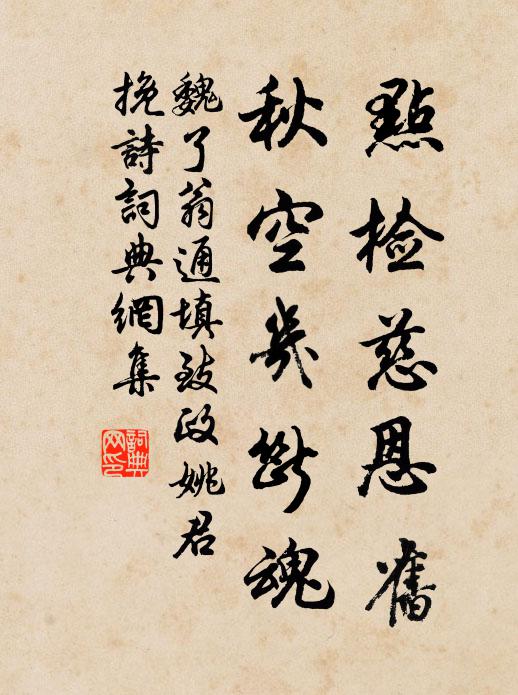 點檢慈恩舊
秋空幾斷魂
魏了翁通填致政姚君
挽詩詞典網集
詞典
网印